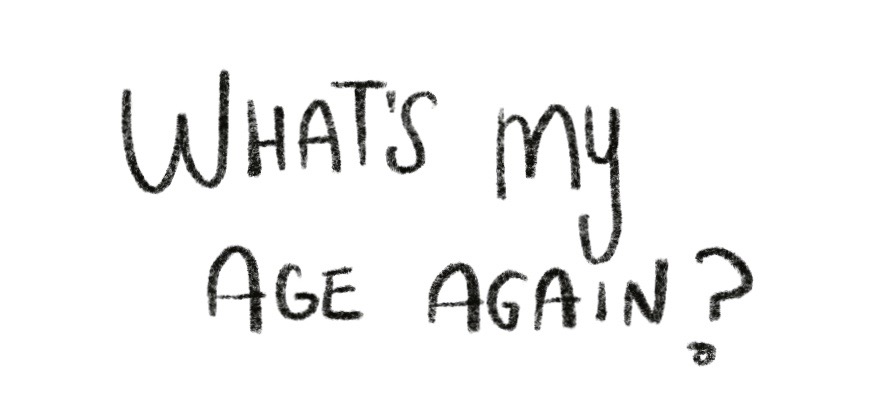 WHAT'S my
AGE AGAIN?